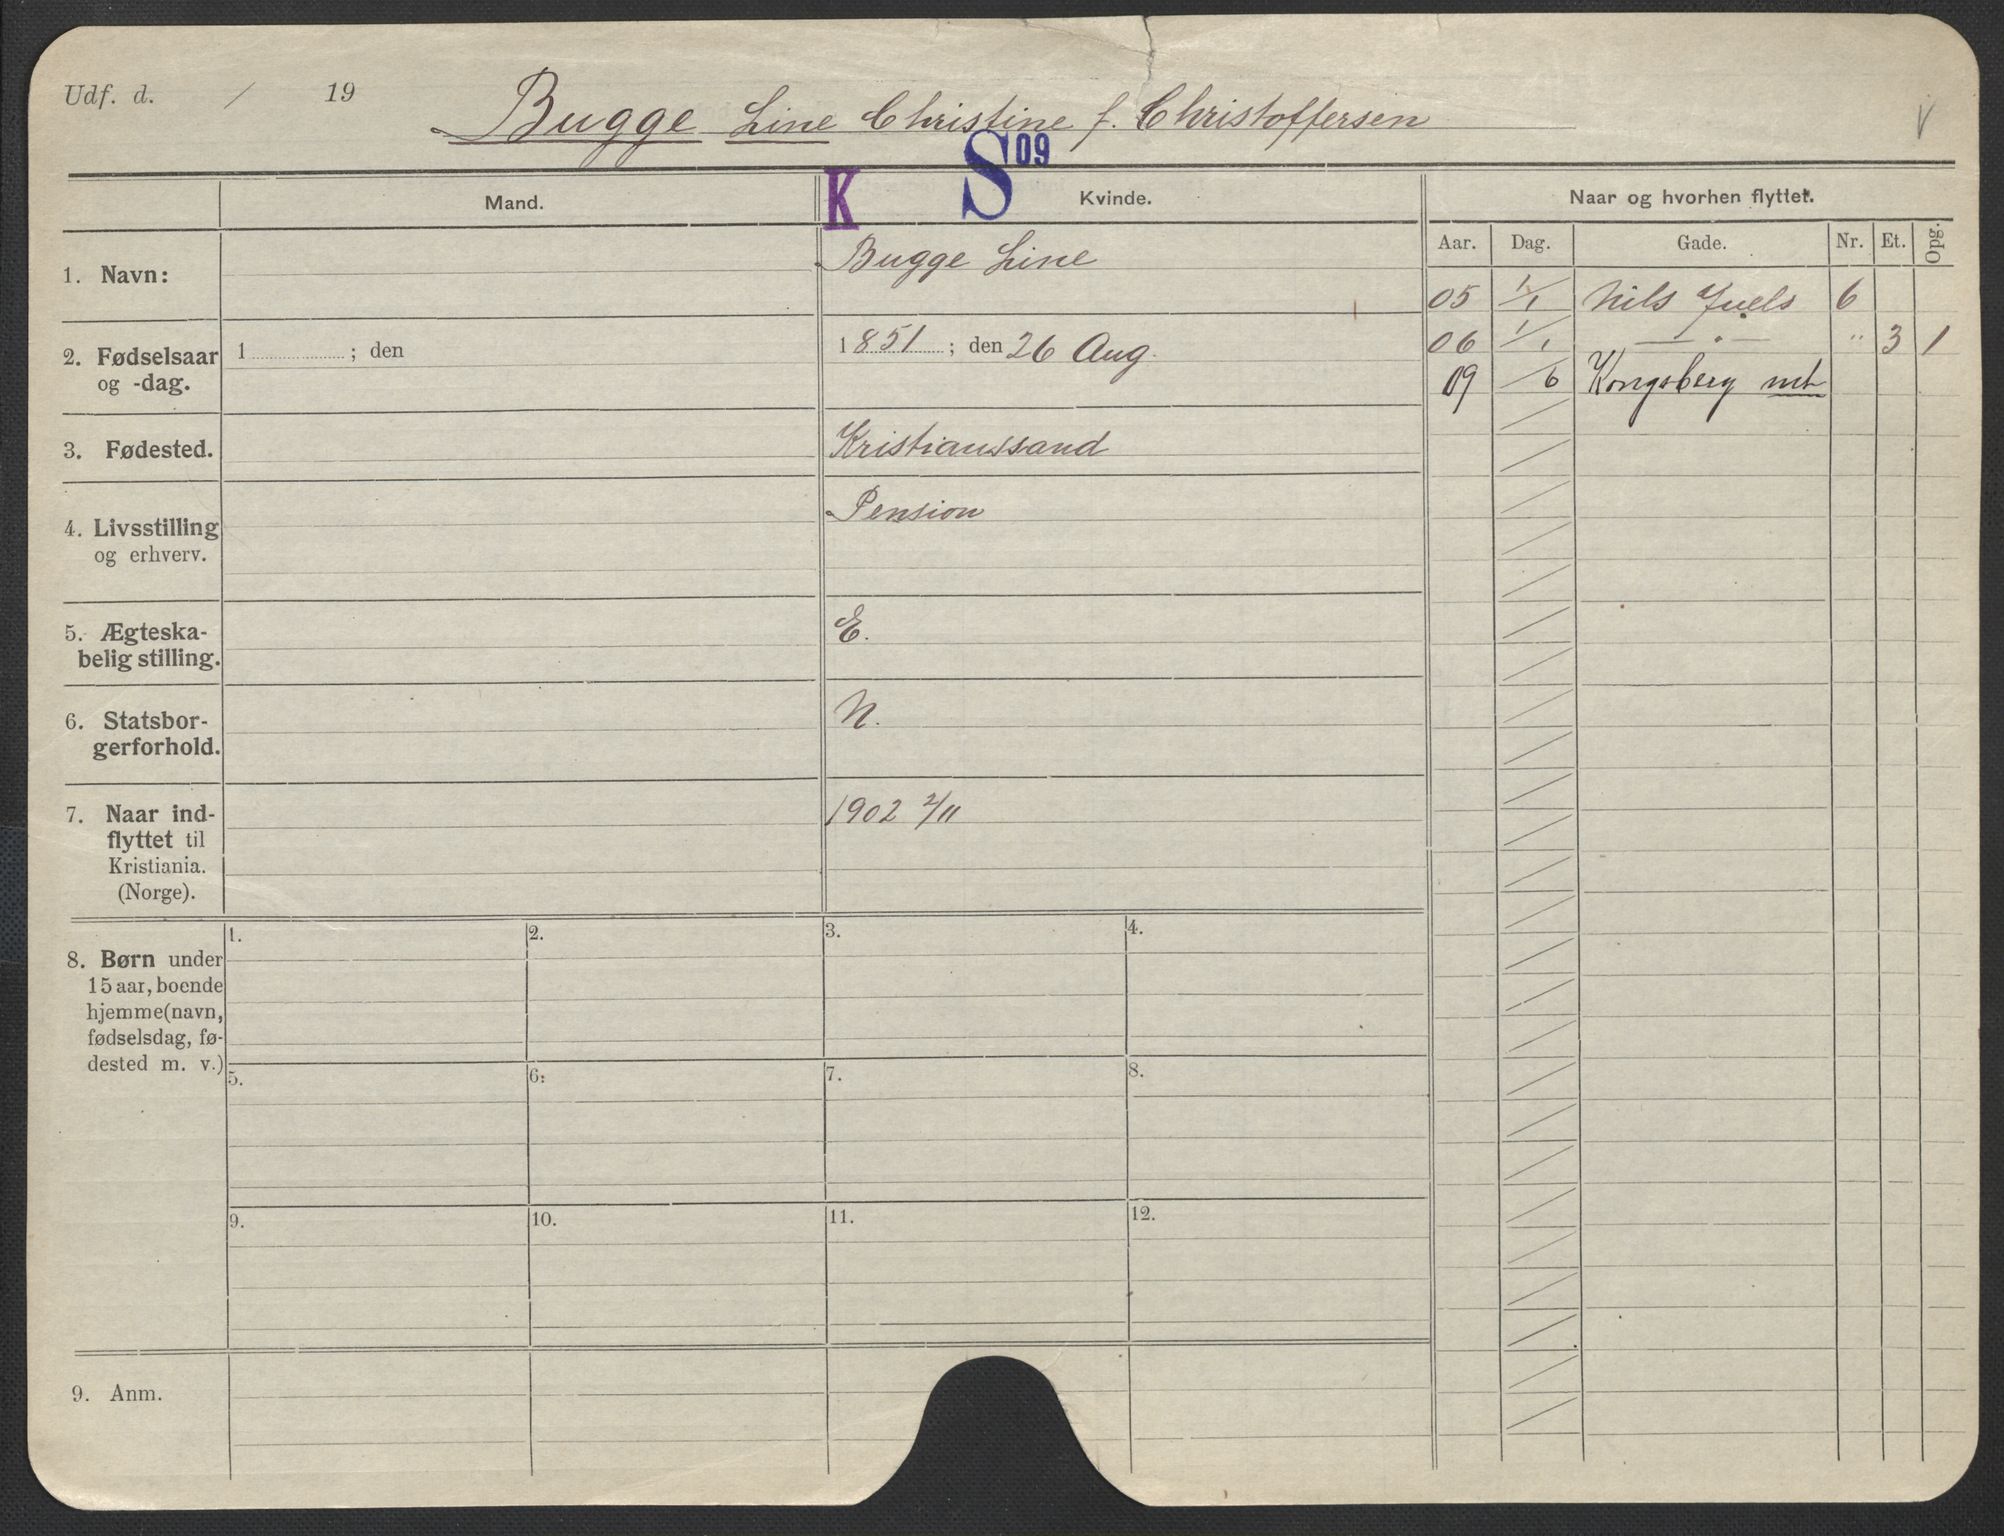 Udf. d. / 19
Bugge Line Christine f. Christoffersen
V
K S 09
Mand. Kvinde. Naar og hvorhen flyttet.
Aar. Dag. Gade. Nr. Et. Opg.
1. Navn: Bugge Line
05 1/1 Nils Juels 6
2. Fødselsaar og -dag. 1 ; den
1851 ; den 26 Aug.
06 1/1 — " — " 3 1
09 /6 Kongsberg
3. Fødested. Kristianssand
4. Livsstilling og erhverv. Pension
5. Ægteska-
belig stilling. E.
6. Statsbor-
gerforhold. N.
7. Naar ind-
flyttet til
Kristiania.
(Norge).
1902 2/11
8. Børn under
15 aar, boende
hjemme (navn,
fødselsdag, fø-
dested m. v.)
1. 2. 3. 4.
5. 6. 7. 8.
9. 10. 11. 12.
9. Anm.